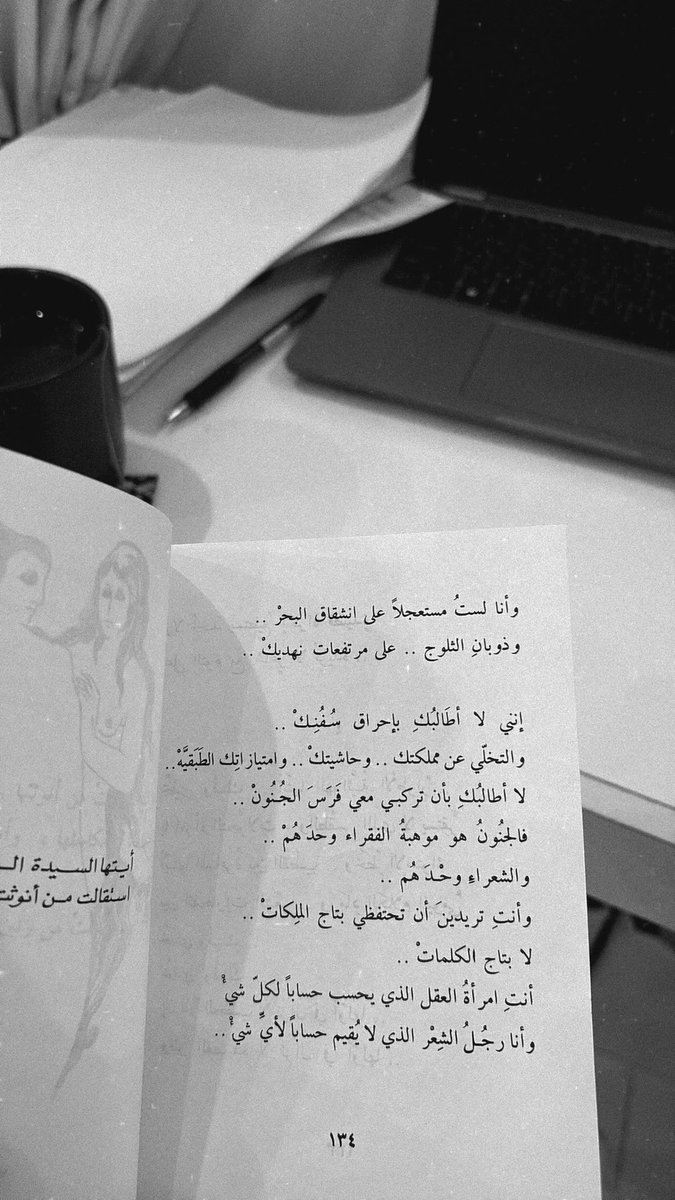 وأنا لستُ مستعجلاً على انشقاق البحرْ ..
وذوبانِ الثلوج .. على مرتفعات نهديكْ ..
إنني لا أطَالبُكِ بإحراق سُفُنِكْ ..
والتخلّي عن مملكتك .. وحاشيتكْ .. وامتيازاتِك الطَبَقيَّهْ..
لا أطالبُكِ بأن تركبي معي فَرَسَ الجُنُونْ ..
فالجنُونُ هو موهبةُ الفقراء وحدَهُمْ ..
والشعراءِ وحْدَهُم ..
وأنتِ تريدينَ أن تحتفظي بتاج الملِكاتْ ..
لا بتاج الكلماتْ ..
أنتِ امرأةُ العقل الذي يحسب حساباً لكلّ شيءْ
وأنا رجُلُ الشِعْر الذي لا يُقيم حساباً لأيِّ شيءْ ..
١٣٤
أيتها السيدة
استقالت من أنوثت